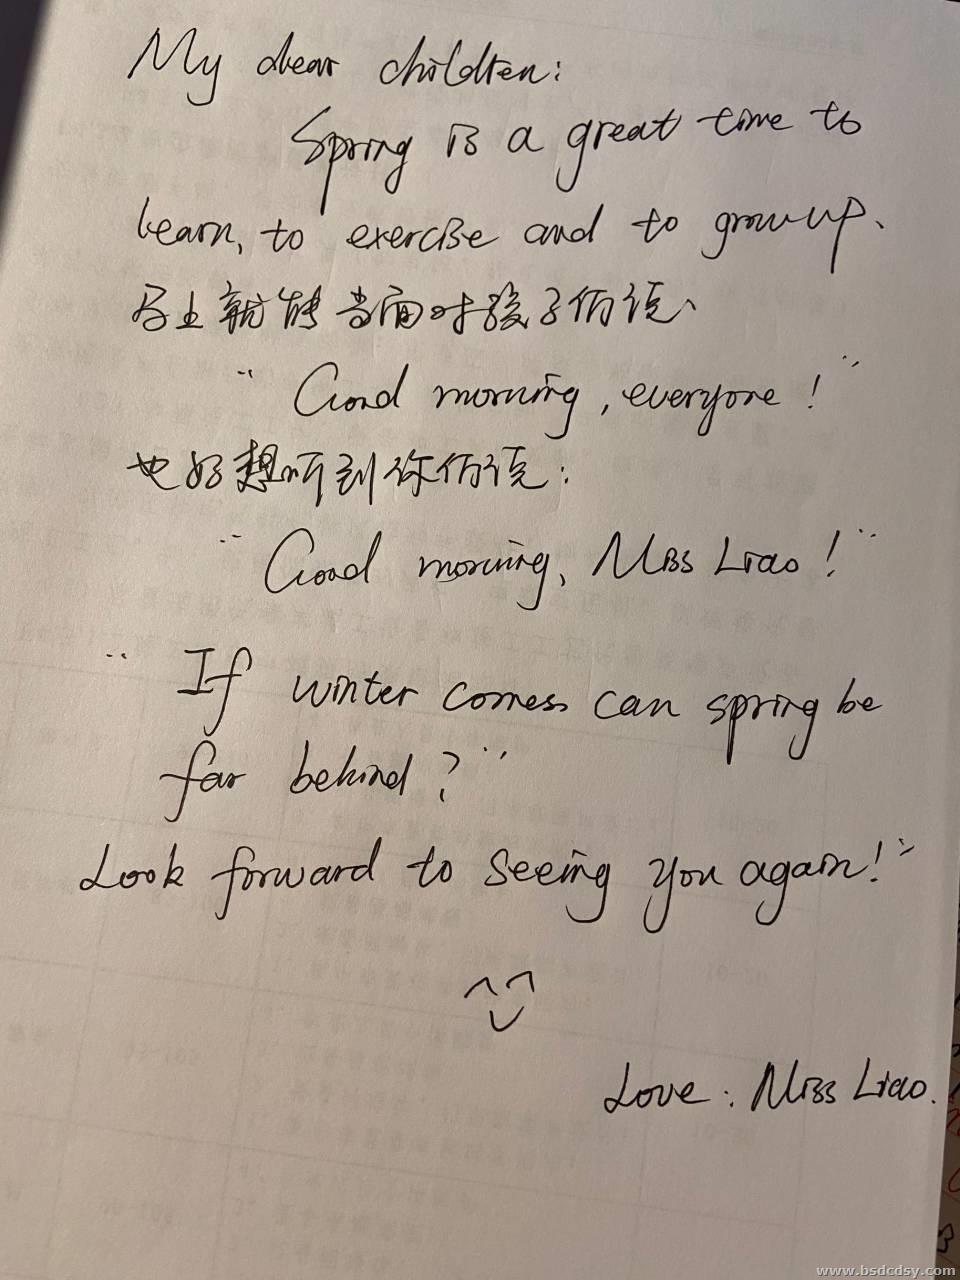 My dear children:
Spring is a great time to
learn, to exercise and to grow up.
马上就能当面对孩子们说、
"Good morning, everyone!"
也好想听到你们说:
"Good morning, Miss Liao!"
"If winter comes can spring be
far behind?"
Look forward to seeing you again!"
Love: Miss Liao.
www.bsdcdsy.com